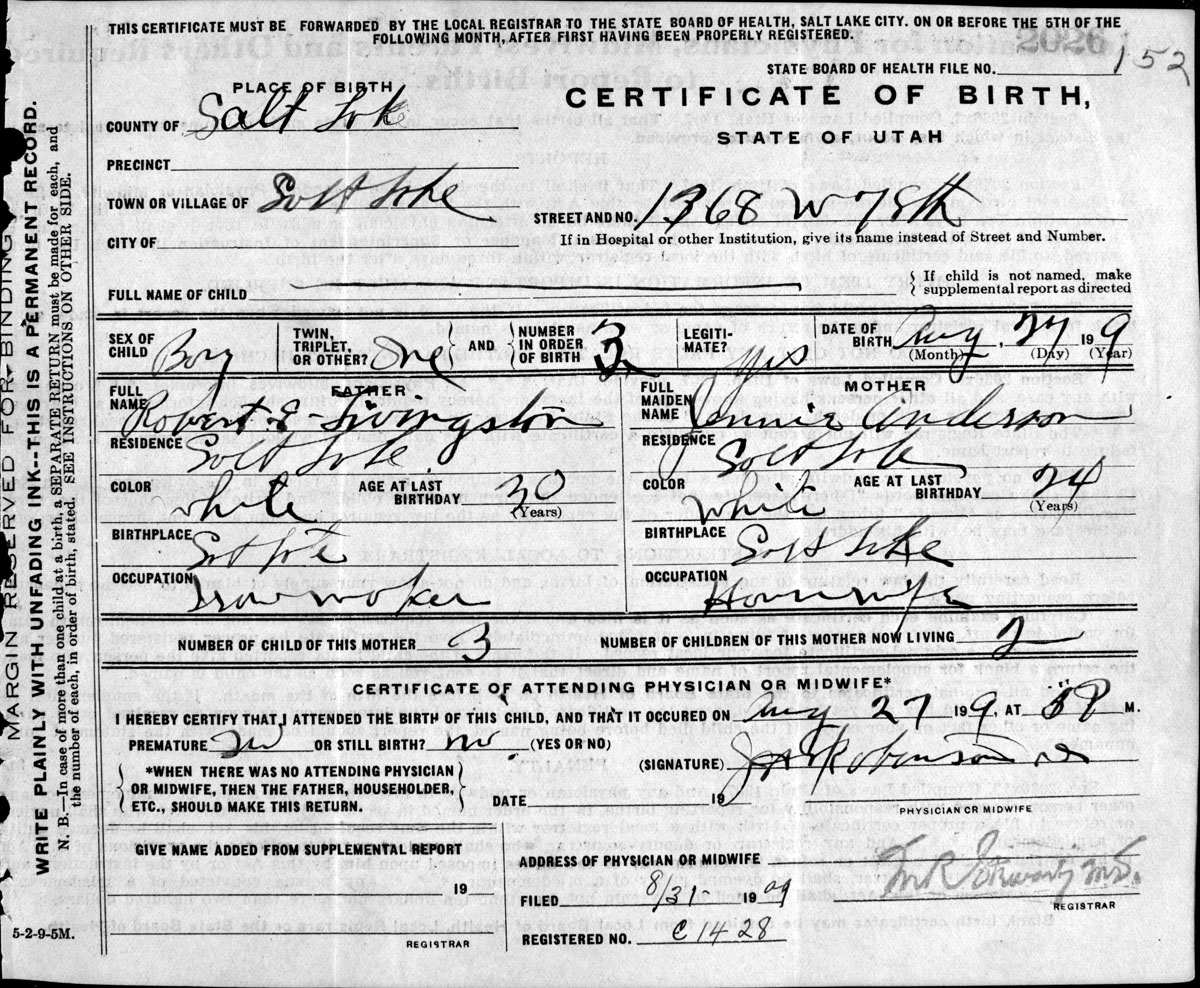 THIS CERTIFICATE MUST BE FORWARDED BY THE LOCAL REGISTRAR TO THE STATE BOARD OF HEALTH, SALT LAKE CITY. ON OR BEFORE THE 5TH OF THE
FOLLOWING MONTH, AFTER FIRST HAVING BEEN PROPERLY REGISTERED.
152
STATE BOARD OF HEALTH FILE NO.
PLACE OF BIRTH
CERTIFICATE OF BIRTH,
STATE OF UTAH
COUNTY OF Salt Lake
PRECINCT
TOWN OR VILLAGE OF Salt Lake
STREET AND NO. 1368 W
CITY OF
If in Hospital or other Institution, give its name instead of Street and Number.
FULL NAME OF CHILD
{ If child is not named, make
supplemental report as directed
SEX OF CHILD Boy
TWIN, TRIPLET, OR OTHER? One
{ AND }
NUMBER IN ORDER OF BIRTH 3
LEGITI-MATE? Yes
DATE OF BIRTH Aug, 27 1909
(Month) (Day) (Year)
FATHER
MOTHER
FULL NAME Robert E Livingston
FULL MAIDEN NAME Jennie Anderson
RESIDENCE Salt Lake
RESIDENCE Salt Lake
COLOR White
AGE AT LAST BIRTHDAY 30 (Years)
COLOR White
AGE AT LAST BIRTHDAY 24 (Years)
BIRTHPLACE Salt Lake
BIRTHPLACE Salt Lake
OCCUPATION
OCCUPATION Housewife
NUMBER OF CHILD OF THIS MOTHER 3
NUMBER OF CHILDREN OF THIS MOTHER NOW LIVING 2
CERTIFICATE OF ATTENDING PHYSICIAN OR MIDWIFE*
I HEREBY CERTIFY THAT I ATTENDED THE BIRTH OF THIS CHILD, AND THAT IT OCCURED ON Aug 27 1909, AT P M.
PREMATURE No OR STILL BIRTH? No. (YES OR NO)
(SIGNATURE) Robinson
{ *WHEN THERE WAS NO ATTENDING PHYSICIAN
OR MIDWIFE, THEN THE FATHER, HOUSEHOLDER,
ETC., SHOULD MAKE THIS RETURN. }
DATE 19
PHYSICIAN OR MIDWIFE
GIVE NAME ADDED FROM SUPPLEMENTAL REPORT
ADDRESS OF PHYSICIAN OR MIDWIFE
19
FILED 8/31- 1909
REGISTRAR
5-2-9-5M.
REGISTRAR
REGISTERED NO. C 1428
MARGIN RESERVED FOR BINDING
WRITE PLAINLY WITH UNFADING INK--THIS IS A PERMANENT RECORD.
N. B.—In case of more than one child at a birth, a SEPARATE RETURN must be made for each, and
the number of each, in order of birth, stated. SEE INSTRUCTIONS ON OTHER SIDE.